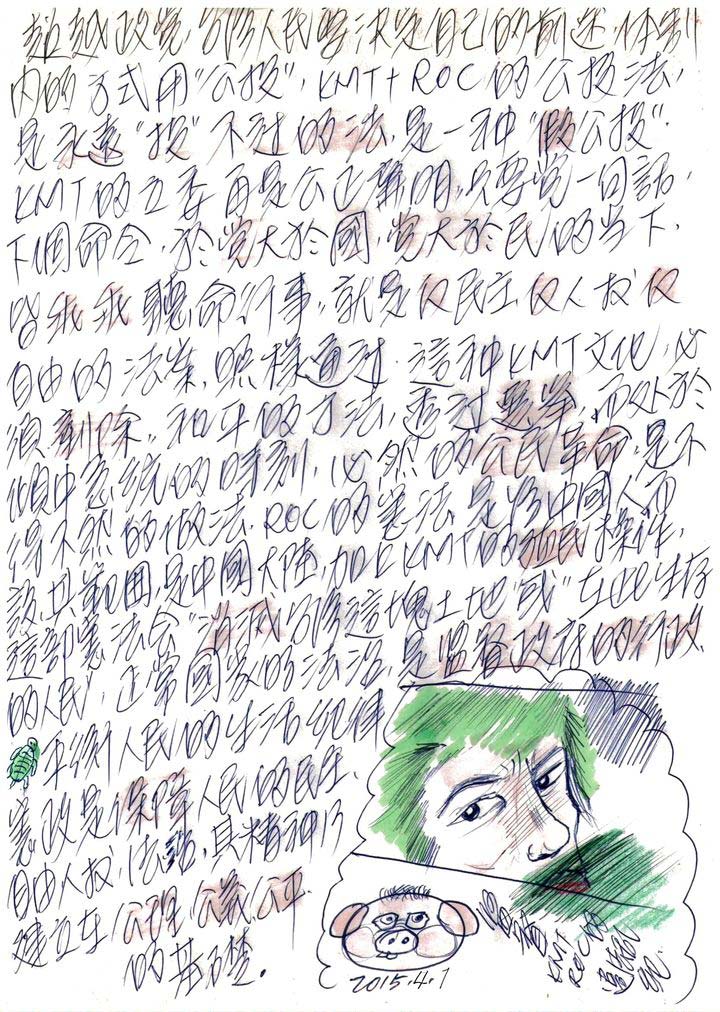 超越政党,台湾人民要決定自己的前途,体制
內的方式用"公投",KMT+ROC的公投法,
是永遠"投"不过的法,是一种"假公投".
KMT的立委再是公正難明,只要党一句話,
下個命令,於党大於國,党大於民的当下,
皆乖乖聽命行事,就是反民主反人权反
自由的法案,照樣通过.這种KMT文化,必
須剷除,和平的方法,透过選举,而处於
傾中急統的時刻,必然的公民革命,是不
得不然的做法.ROC的憲法是為中國人而
設,其範囲是中國大陸,加上KMT的操作,
這部憲法会"消滅"台湾這塊土地"或"在此生存
的人民,正常國家的法治,是監督政府的行政,
平衡人民的生活紀律
憲政是保障人民的民生,
自由人权,法治,其精神乃
建立在公理公義公平
的基礎.
2015.4.1
KMT
ROC的